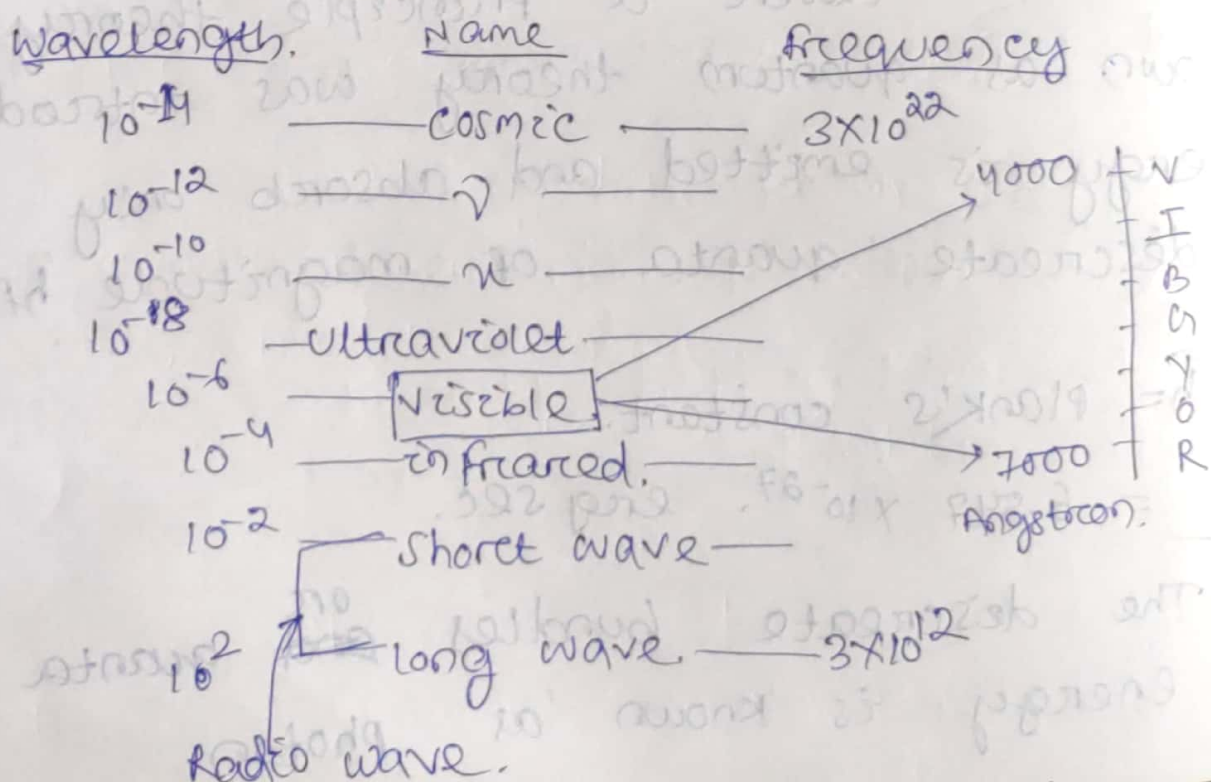 Wavelength. Name frequency
10^-14 cosmic 3×10^22
10^-12 γ
10^-10 x
10^-18 Ultraviolet
10^-6 Visible
10^-4 infrared.
10^-2 Short wave
10^2 long wave. 3×10^12
Radio wave.
4000 V
I
B
G
Y
O
7000 R
Angstron.